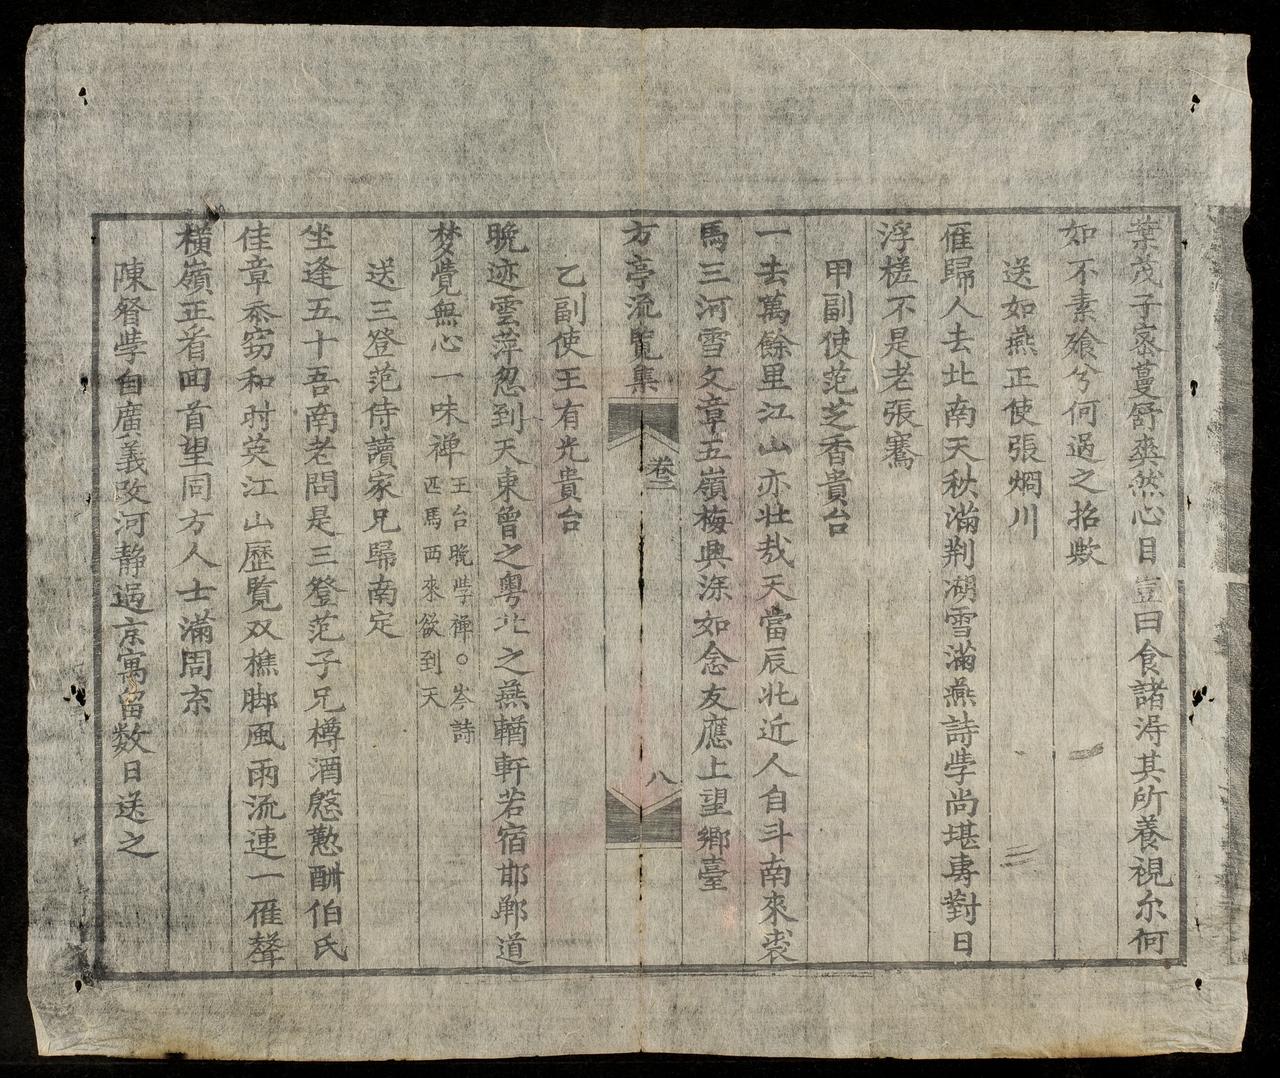 葉茂子家蔓舒爽然心目豈曰食諸淂其所養視尔何
如不素飱兮何過之招歟
送如燕正使張烱川
雁歸人去北南天秋滿荆湖雪滿燕詩斈尚堪專對日
浮槎不是老張騫
甲副使范芝香貴台
一去萬餘里江山亦壮㢤天當辰北近人自斗南來裘
馬三河雪文章五嶺梅興深如念友應上望鄉臺
方亭流覧集
卷三
八
乙副使王有光貴台
晩迹雲萍忽到天東曾之粤北之燕輶軒若宿邯鄲道
梦覺無心一味禅
王台晩斈禅○岑詩
匹馬西來欲到天
送三登范侍讀家兄歸南定
坐逢五十吾南老問是三登范子兄樽酒慇懃酬伯氏
佳章忝窃和时英江山歷覧双樵脚風雨流連一雁聲
横嶺正看囬首望同方人士滿周京
陳督斈自廣義改河静過京寓留数日送之